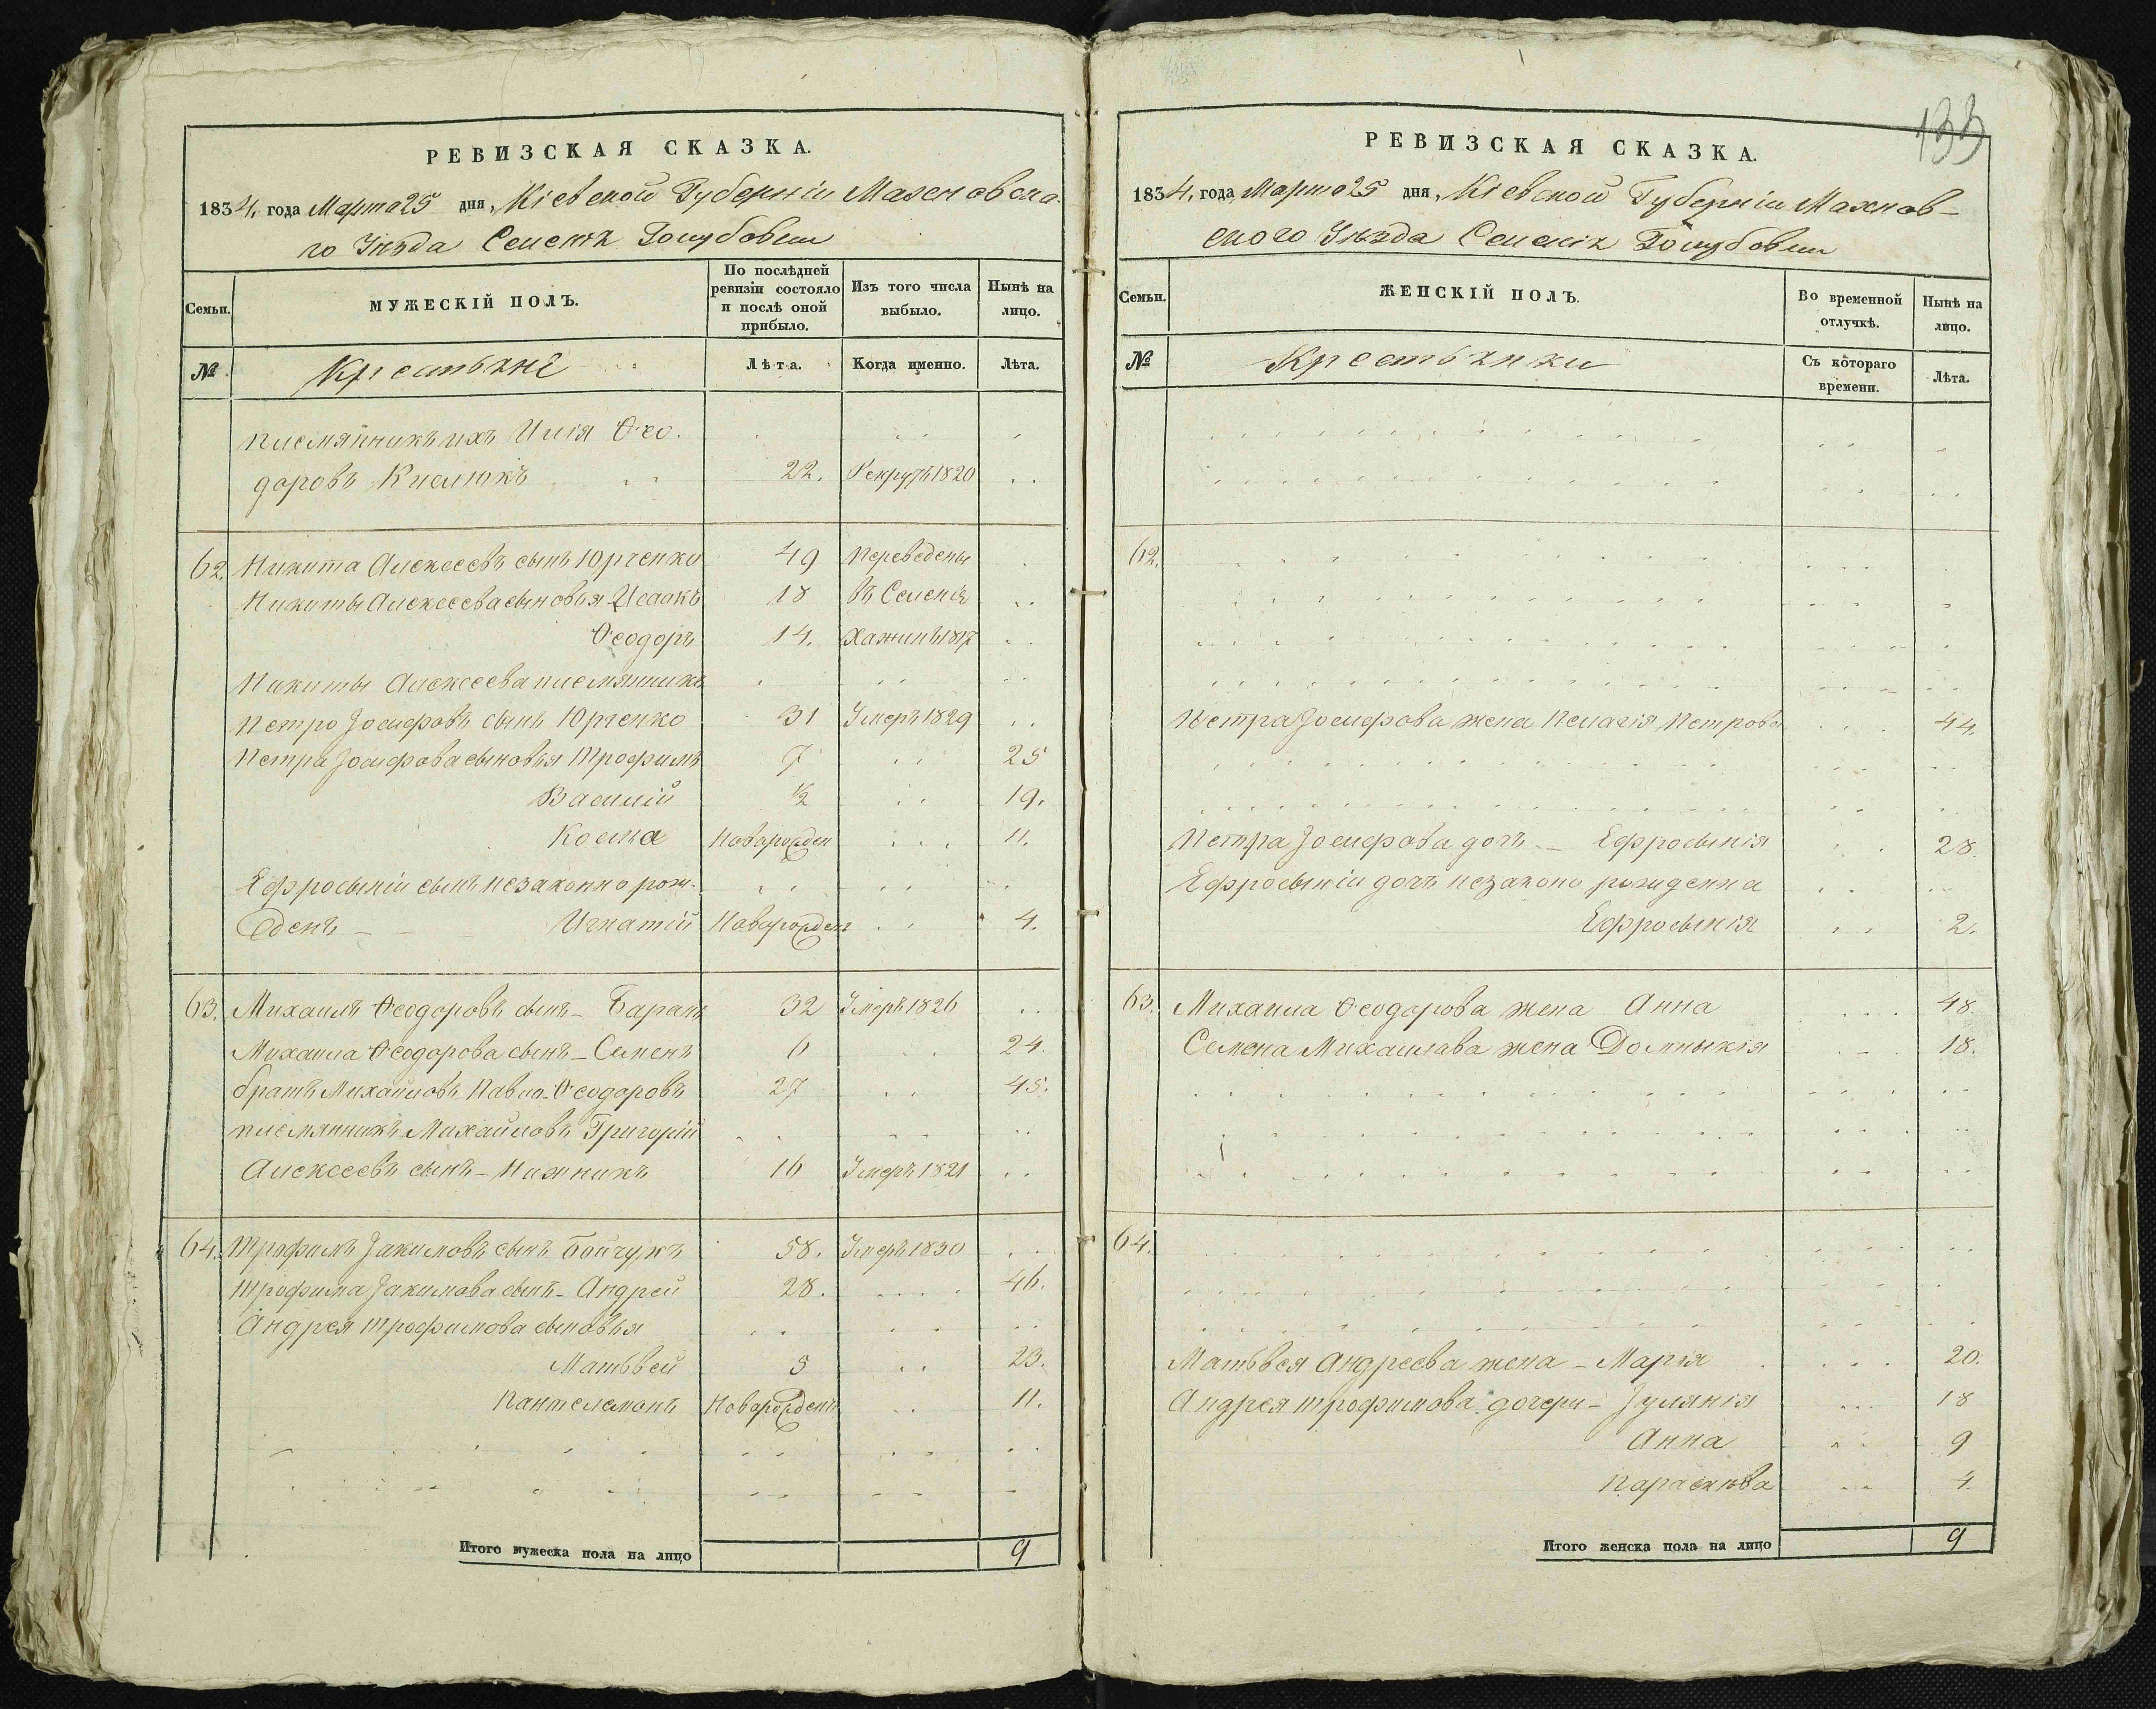 РЕВИЗСКАЯ СКАЗКА.
1834, года Марта 25 дня, Кіевской Губерніи Махновска
го Уѣзда Селенія
Семьи.
МУЖЕСКІЙ ПОЛЪ.
По послѣдней ревизіи состояло и послѣ оной прибыло.
Изъ того числа выбыло.
Нынѣ на лицо.
№
Крестьяне
Лѣта.
Когда именно.
Лѣта.
племянникъ ихъ Илія Ѳео-
доровъ Кислюкъ 22. Рекрутъ 1820
62. Никита Алексеевъ сынъ Юрченко 49 Переведены
Никиты Алексеева сыновья Исаакъ 18 въ Селеніе
Ѳеодоръ 14. Хажинъ 1817
Никиты Алексеева племянникъ
Петро Іосифовъ сынъ Юрченко 31 Умеръ 1829
Петра Іосифова сыновья Трофимъ 7 25
Василій ½ 19.
Косма Новорожден 11.
Ефросыніи сынъ незаконно рож-
денъ Игнатій Новорожденъ 4.
63. Михаилъ Ѳеодоровъ сынъ - Баранъ 32 Умеръ 1826
Михаила Ѳеодорова сынъ - Семенъ 6 24.
братъ Михайловъ Павло Ѳеодоровъ 27 45.
племянникъ Михайловъ Григорій
Алексеевъ сынъ - 16 Умеръ 1821
64. Трофимъ Іакимовъ сынъ Бойчукъ 58. Умеръ 1830
Трофима Іакимова сынъ - Андрей 28. 46.
Андрея Трофимова сыновья
Матьвей 5 23.
Пантелемонъ Новорожденъ 11.
Итого мужеска пола на лицо 9
133
РЕВИЗСКАЯ СКАЗКА.
1834, года Марта 25 дня, Кіевской Губерніи Махнов-
ского Уѣзда Селенія
Семьи.
ЖЕНСКІЙ ПОЛЪ.
Во временной отлучкѣ.
Нынѣ на лицо.
№
Крестьянки
Съ котораго времени.
Лѣта.
62.
Петра Іосифова жена Пелагія Петрова 44.
Петра Іосифова дочь - Ефросынія 28.
Ефросыніи дочь незаконо рожденна
Ефросынія 2.
63. Михаила Ѳеодорова жена Анна 48.
Семена Михаилава жена Домныкія 18.
64.
Матьвея Андреева жена - Марія 20.
Андрея Трофимова дочери - Іулянія 18
Анна 9
Параскева 4.
Итого женска пола на лицо 9